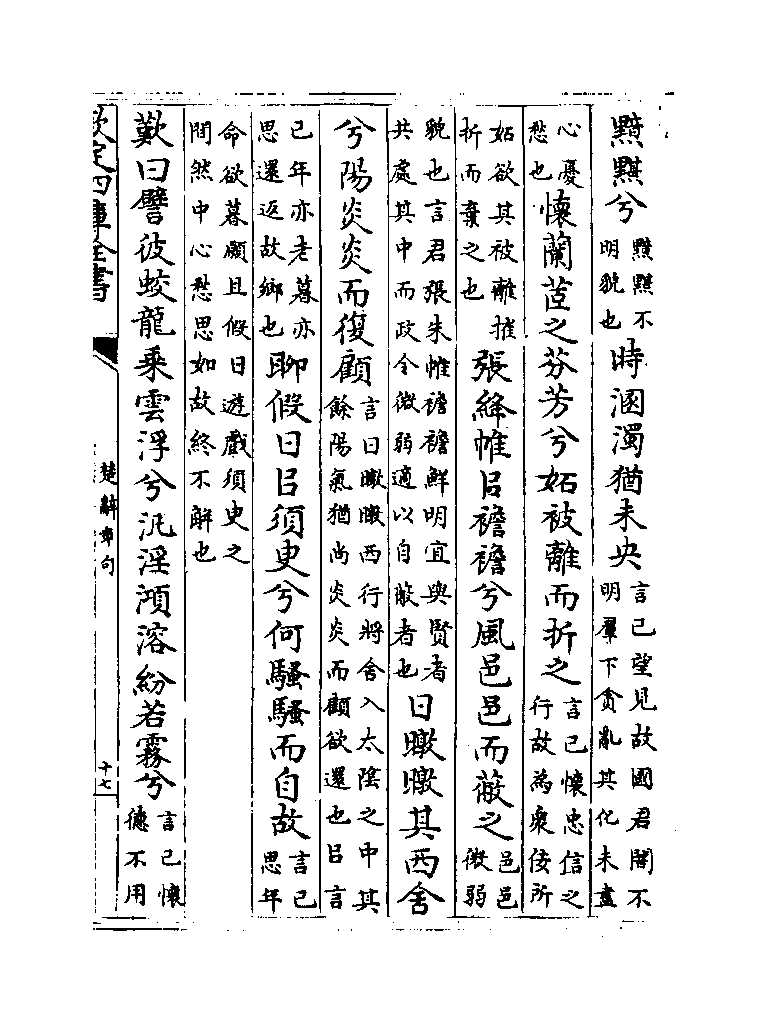 黯黮兮黯黮不明貌也時溷濁猶未央言己望見故國君闇不明羣下貪亂其化未盡
心憂愁也懷蘭茝之芬芳兮妬被離而折之言己懷忠信之行故為衆佞所
妬欲其被離摧折而棄之也張絳帷㠯襜襜兮風邑邑而蔽之邑邑微弱
貌也言君張朱帷襜襜鮮明宜與賢者共處其中而政令微弱適以自蔽者也日暾暾其西舍
兮陽炎炎而復顧言日暾暾西行將舍入太陰之中其餘陽氣猶尚炎炎而顧欲還也㠯言
己年亦老暮亦思還返故鄉也聊假日㠯須臾兮何騷騷而自故言己思年
命欲暮願且假日遊戲須臾之間然中心愁思如故終不解也
歎曰譬彼蛟龍乗雲浮兮汎淫澒溶紛若霧兮言己懷德不用
欽定四庫全書
楚辭章句
十七